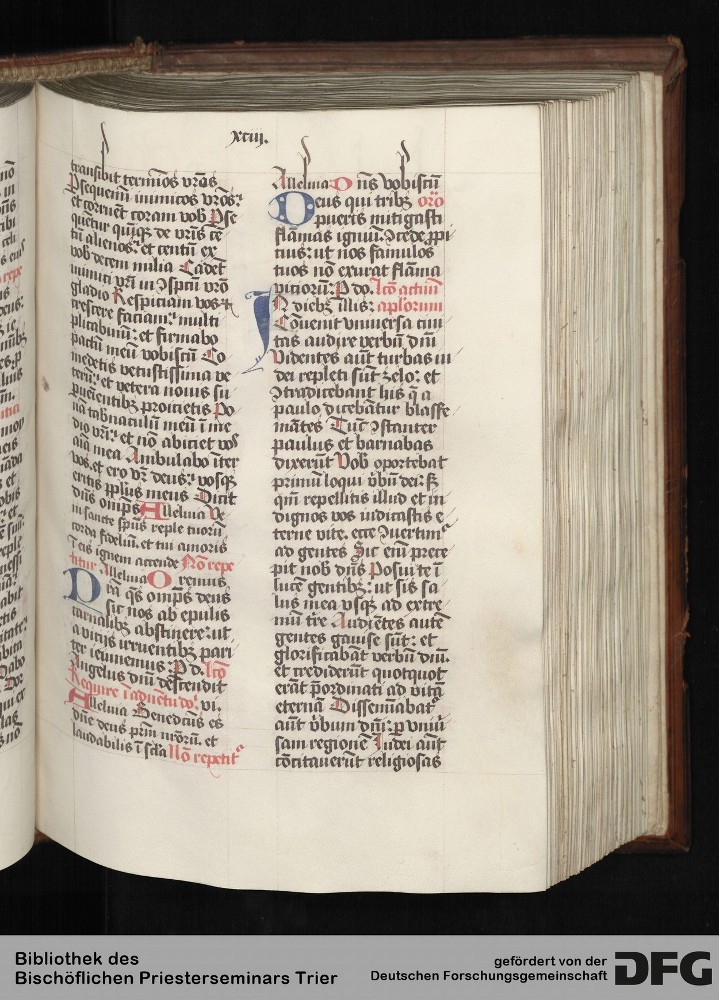 xciii.
transibit terminos vr̄as
Persequemī inimicos vr̄os ⁊
et corruēt coram vob̄ Perse
quētur quīqꝫ de vr̄is cē
tū alienos ⁊ et centū ex
vob̄ decem milia Cadēt
inimici vr̄i in ꝯspectū vr̄o
gladio Respiciam vos ⁊
crescere faciam ⁊ multi
plicabimī ⁊ et firmabo
pactū meū vobiscū Co
medetis vetustissima ve
terū ⁊ et vetera nouis su
pueientibꝫ proicietis Po
nā tab̄naculū meū ī me
dio vr̄i ⁊ et nō abiciet vos
aīa mea Ambulabo īter
vos et ero vr̄ deus ⁊ vosqꝫ
eritis pp̄lus meus Dicit
dn̄s omp̄s Alleluia Ve
ni sancte sp̄us reple tuorū
corda fideliū et tui amoris
ī eis ignem accende Nō repe
titur Alleluia Oremus
Da qs̄ omp̄s deus
sic nos ab epulis
carnalibꝫ abstinere ⁊ ut
a vitijs irruentibꝫ pari
ter ieiunemus ⁊ P d. lcō
Angelus dn̄i descendit
Require ī aduētu do. vi.
Alleluia Benedctus es
dn̄e deus pr̄m nr̄orū et
laudabilis ī scl̄a Nō repetit
Alleluia Dn̄s vobiscū
Deus qui tribꝫ orō
pueris mitigasti
flāmas igniū ꝯcede ꝓpi
tius ⁊ ut nos famulos
tuos nō exurat flāma
vitiorū ⁊ P do. lcō actuū
In diebꝫ illis ⁊ apl̄orum
Cōuenit vniuersa ciui
tas audire verbū dn̄i
Videntes aūt turbas iu
dei repleti sūt zelo ⁊ et
ꝯtradicebant his q̄ a
paulo dicebātur blasfe
mātes Tūc ꝯstanter
paulus et barnabas
dixerūt Vob̄ oportebat
primū loqui v̄bū dei ⁊ sꝫ
qm̄ repellitis illud et in
dignos vos iudicastis e
terne vite. ecce ꝯuertim̄
ad gentes Sic eni prece
pit nob̄ dn̄s Posui te ī
lucē gentibꝫ ⁊ ut sis sa
lus mea vsqꝫ ad extre
mū tr̄e Audiētes autē
gentes gauise sūt ⁊ et
glorificabāt verbū dn̄i.
et crediderūt quotquot
erāt p̄ordinati ad vitā
eternā Disseminabat̄
aūt v̄bum dn̄i ⁊ p vniū
sam regionē Iudei aūt
cōcitauerūt religiosas
Bibliothek des
Bischöflichen Priesterseminars Trier
gefördert von der
Deutschen Forschungsgemeinschaft
DFG